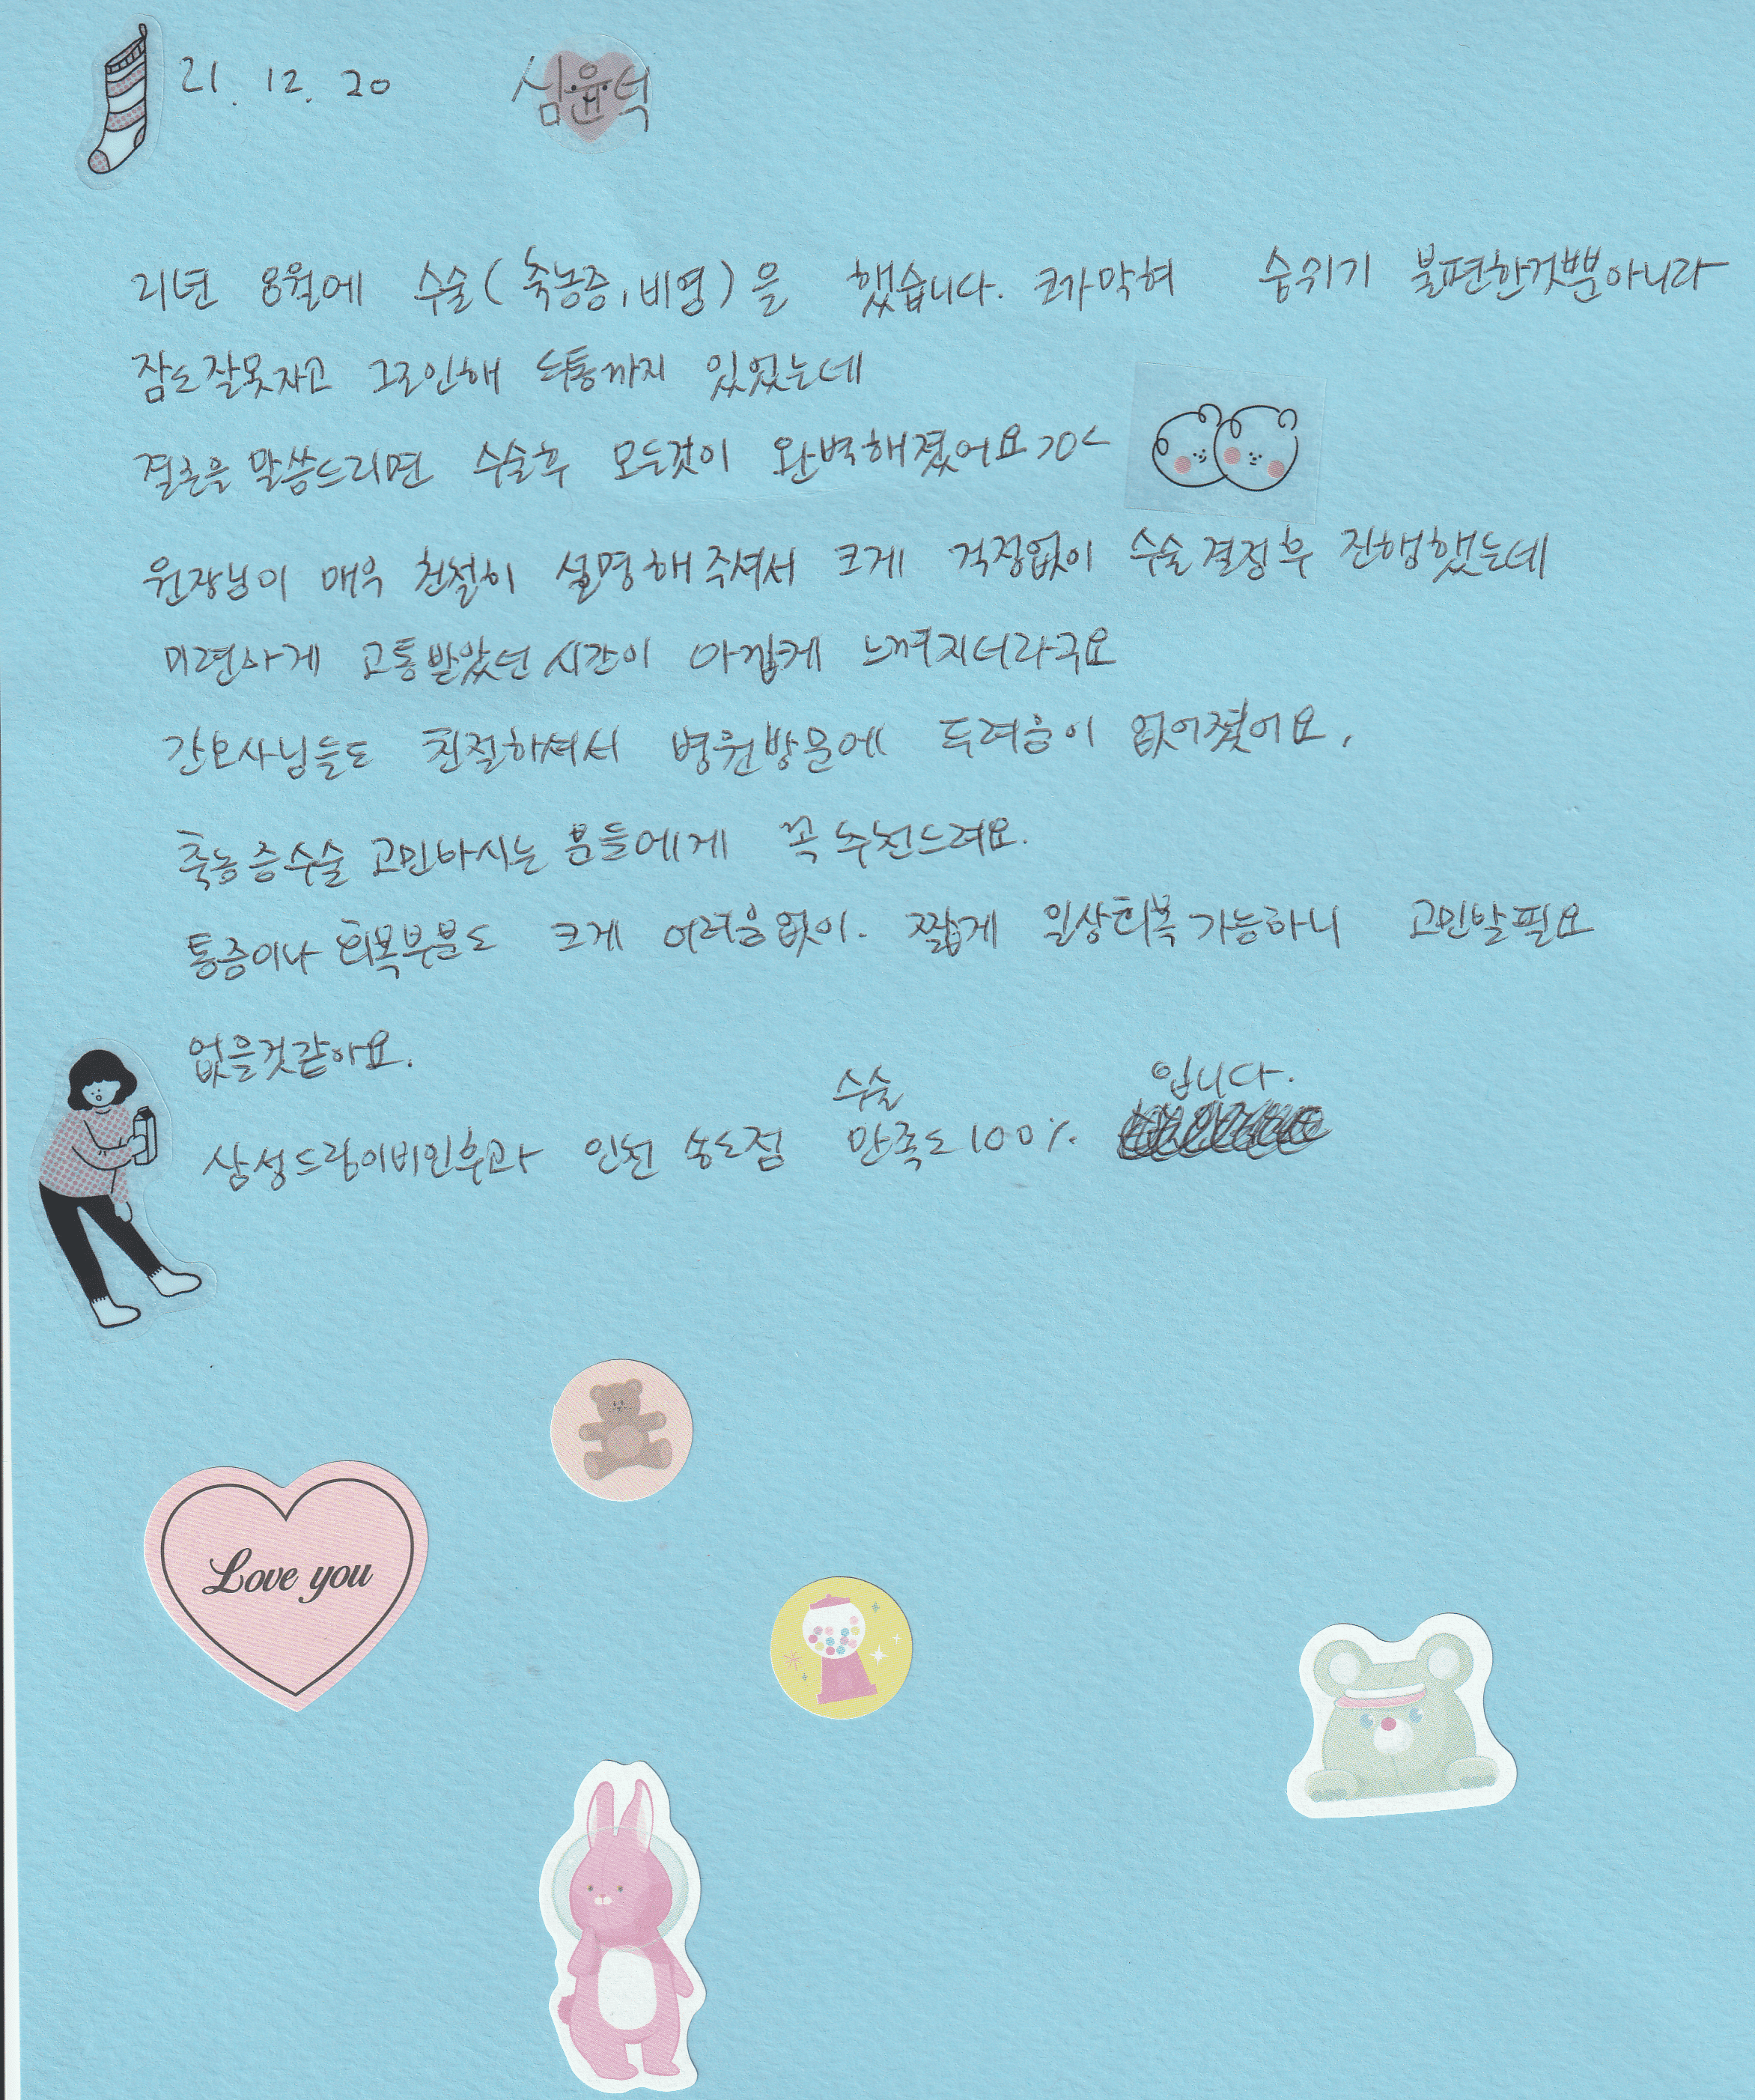 21. 12. 20 심윤덕
21년 8월에 수술(축농증, 비염)을 했습니다. 코가막혀 숨쉬기 불편한것뿐아니라
잠도잘못자고 그로인해 두통까지 있었는데
결론을 말씀드리면 수술후 모든것이 완벽해졌어요 >0<
원장님이 매우 친절히 설명해주셔서 크게 걱정없이 수술결정후 진행했는데
미련하게 고통받았던 시간이 아깝게 느껴지더라구요
간호사님들도 친절하셔서 병원방문에 두려움이 없어졌어요.
축농증수술 고민하시는 분들에게 꼭 추천드려요.
통증이나 회복부분도 크게 어려움없이. 짧게 일상회복 가능하니 고민할필요
없을것같아요.
삼성드림이비인후과 인천 송도점 수술 만족도 100% 입니다.
Love you